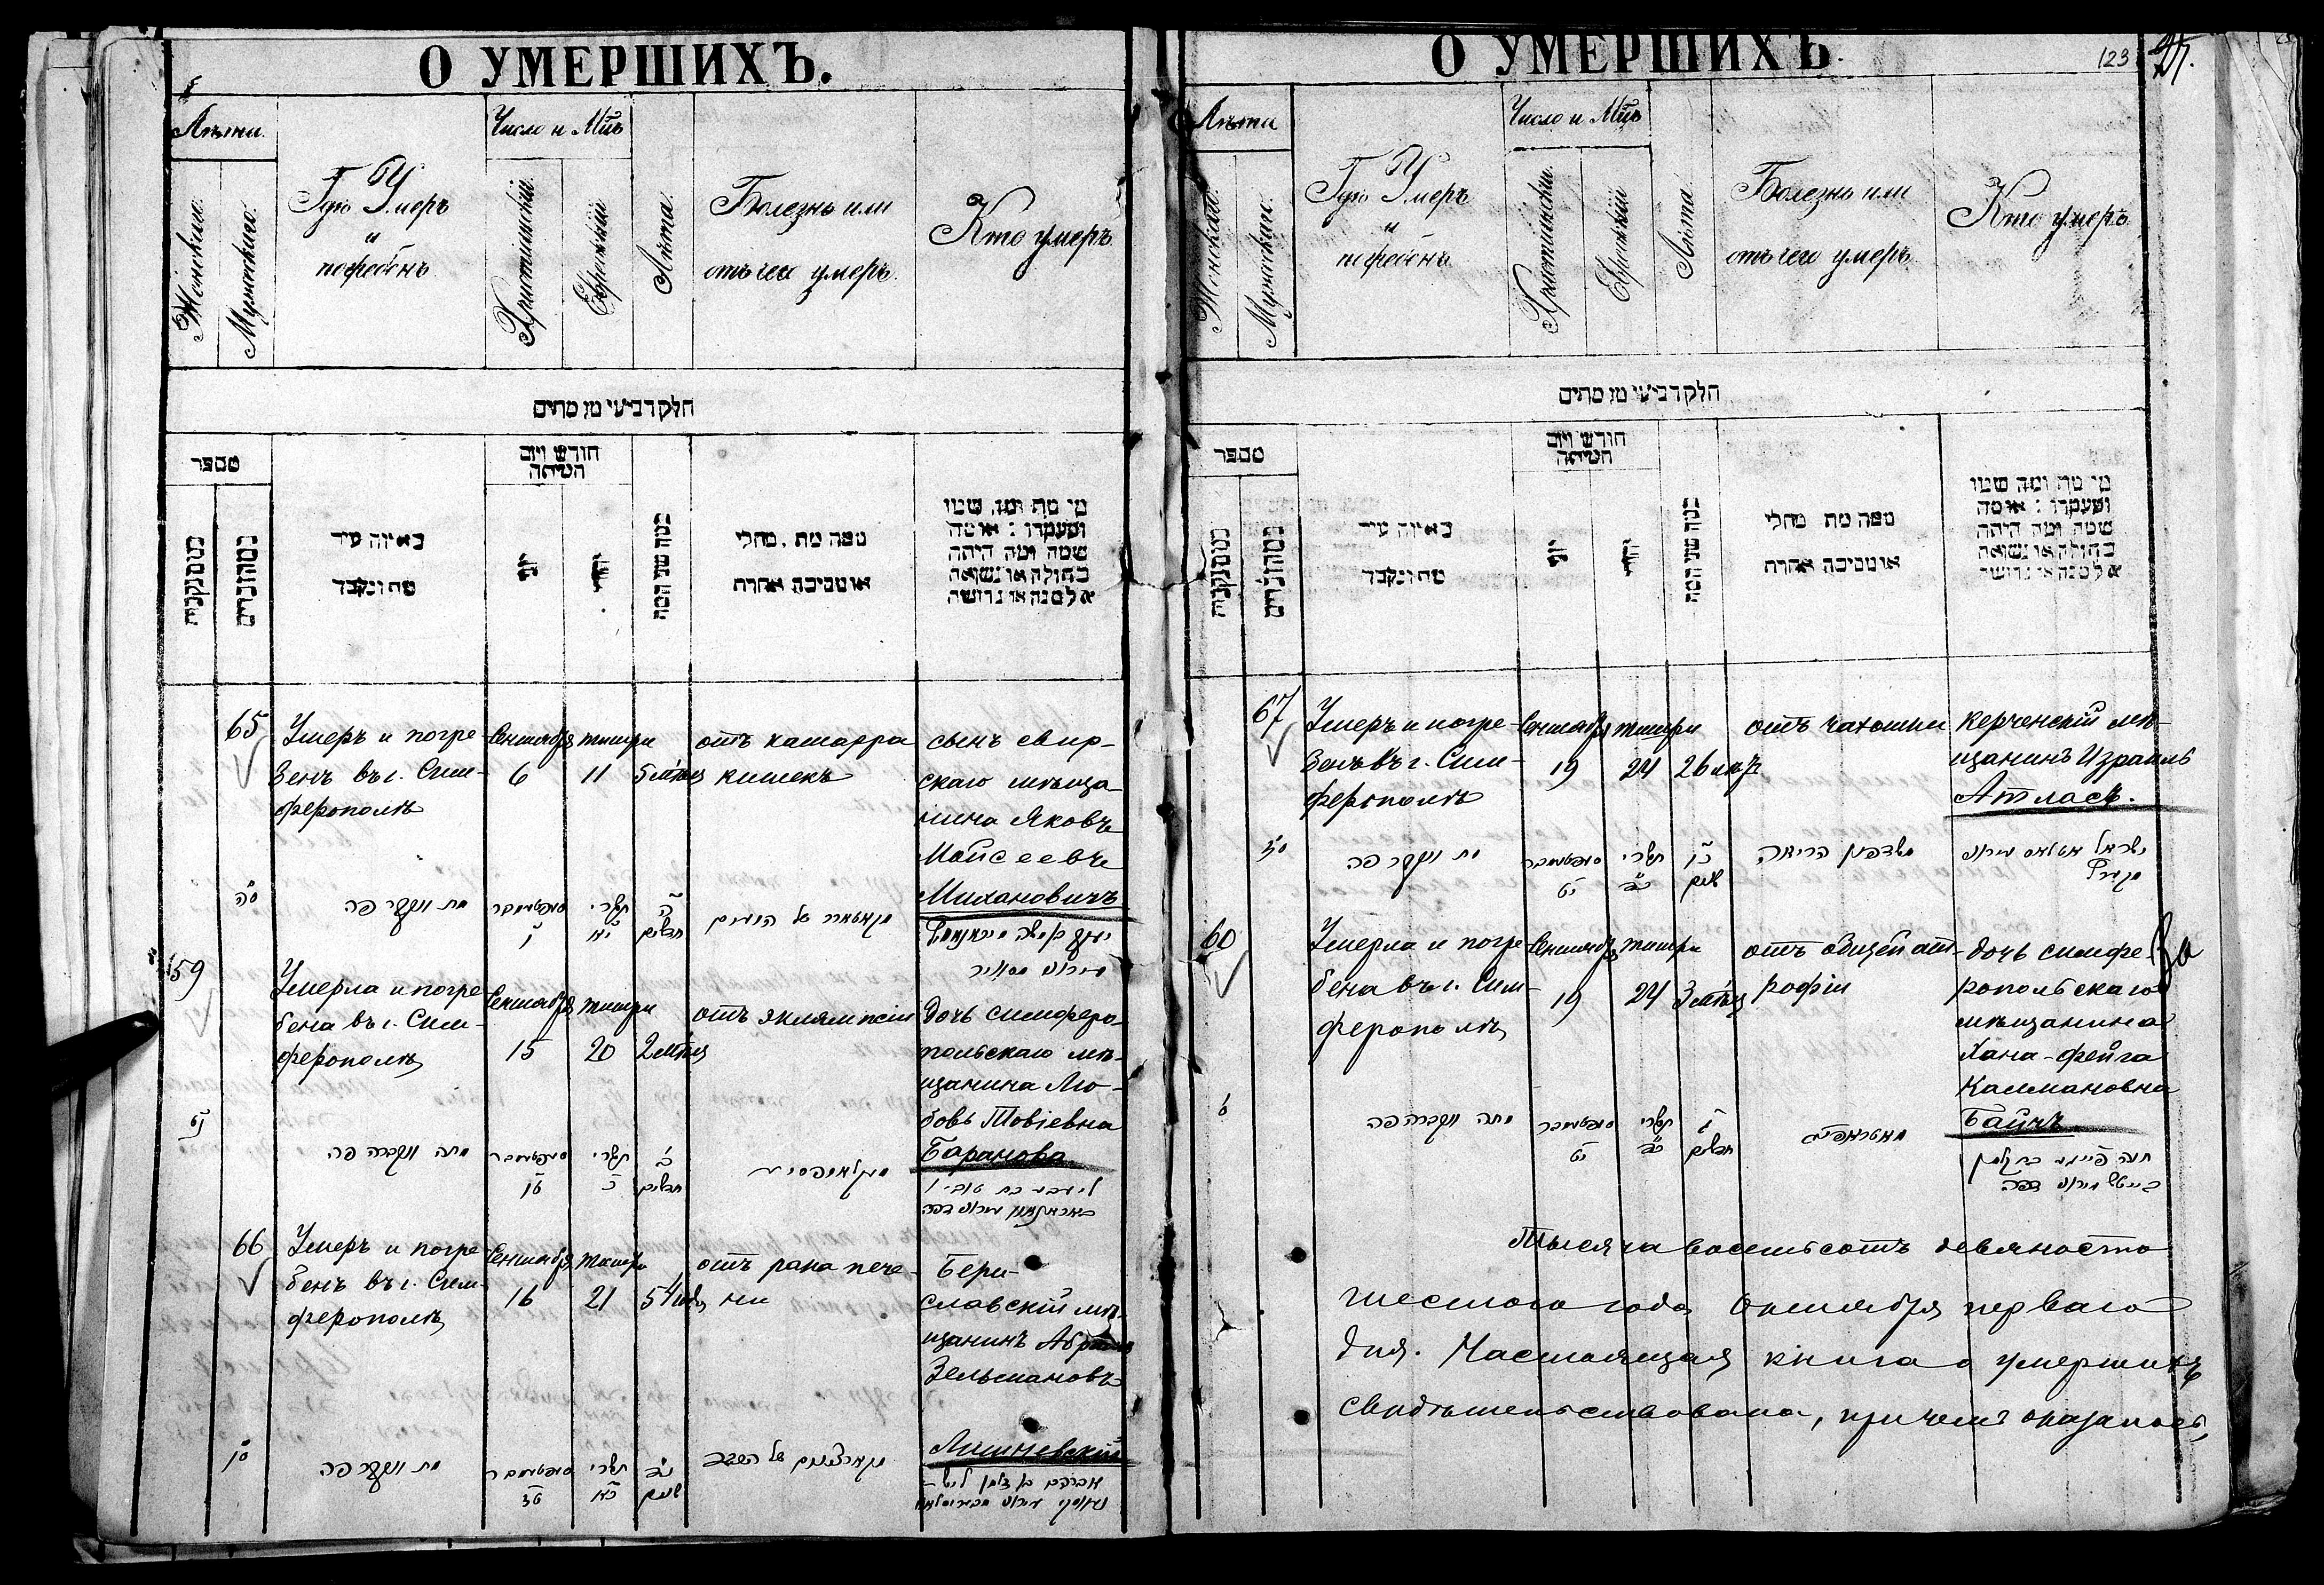 О УМЕРШИХЪ.
Лѣта.
Женскаго.
Мужескаго.
Гдѣ Умеръ
и
погребенъ
Число и Мцъ
Христіанскій
Еврейскій
Лѣта.
Болезнь или
отъ чего умеръ.
Кто умеръ
חלק רביעי מן מתים
מספר
חודש ויום
המיתה
באיזה עיר
מת ונקבר
ממה מת . מחלי
או מסיבה אחרת
מי מת ומה שמו
ומעמדו : או מה
שמה ומה היתה
בתולה או נשואה
אלמנה או גרושה
65
Умеръ и погре-
бенъ въ г. Сим-
ферополѣ
Сентября
6
тишри
11
5 мѣсяц
отъ катарра
кишекъ
сынъ свир-
скаго мѣща-
нина Яковъ
Мойсеевъ
Михановичъ
סה
מת ונקבר פה
סעפטעמבר
ו
תשרי
יא
ה
חדשים
59
Умерла и погре-
бена въ г. Сим-
ферополѣ
Сентября
15
тишри
20
2 мѣсяц
отъ эклямпсіи
дочь симферо-
польскаго мѣ-
щанина Лю-
бовь Товіевна
Баранова
נט
מתה ונקברה פה
סעפטעמבר
טו
תשרי
כ
ב
חדשים
66
Умеръ и погре-
бенъ въ г. Сим-
ферополѣ
Сентября
16
тишри
21
54 года
отъ рака пече-
ни
Бери-
славскій мѣ-
щанинъ Абрамъ
Зельмановъ
Лишневскій
סו
מת ונקבר פה
סעפטעמבר
טז
תשרי
כא
נד
שנים
О УМЕРШИХЪ.
123
Лѣта
Женскаго.
Мужескаго.
Гдѣ Умеръ
и
погребенъ
Число и Мцъ
Христіанскій
Еврейскій
Лѣта
Болезнь или
отъ чего умеръ
Кто умеръ
חלק רביעי מן מתים
מספר
חודש ויום
המיתה
באיזה עיר
מת ונקבר
ממה מת מחלי
או מסיבה אחרת
מי מת ומה שמו
ומעמדו : או מה
שמה ומה היתה
בתולה או נשואה
אלמנה או גרושה
67
Умеръ и погре-
бенъ въ г. Сим-
ферополѣ
Сентября
19
тишри
24
26 лѣтъ
отъ чахотки
керченскій мѣ-
щанинъ Израиль
Атласъ.
סז
מת ונקבר פה
סעפטעמבר
יט
תשרי
כד
כו
שנים
משדפון הריאה
ישראל אטלאס
60
Умерла и погре-
бена въ г. Сим-
ферополѣ
Сентября
19
тишри
24
3 мѣсяц
отъ общей ат-
рофіи
дочь симфе-
ропольскаго
мѣщанина
Хана-Фейга
Калмановна
Байчъ
За
ס
מתה ונקברה פה
סעפטעמבר
יט
תשרי
כד
ג
חדשים
Тысяча восемьсотъ девяносто
шестого года Октября перваго
дня. Настоящая книга о умершихъ
свидѣтельствована, при чемъ оказалось,